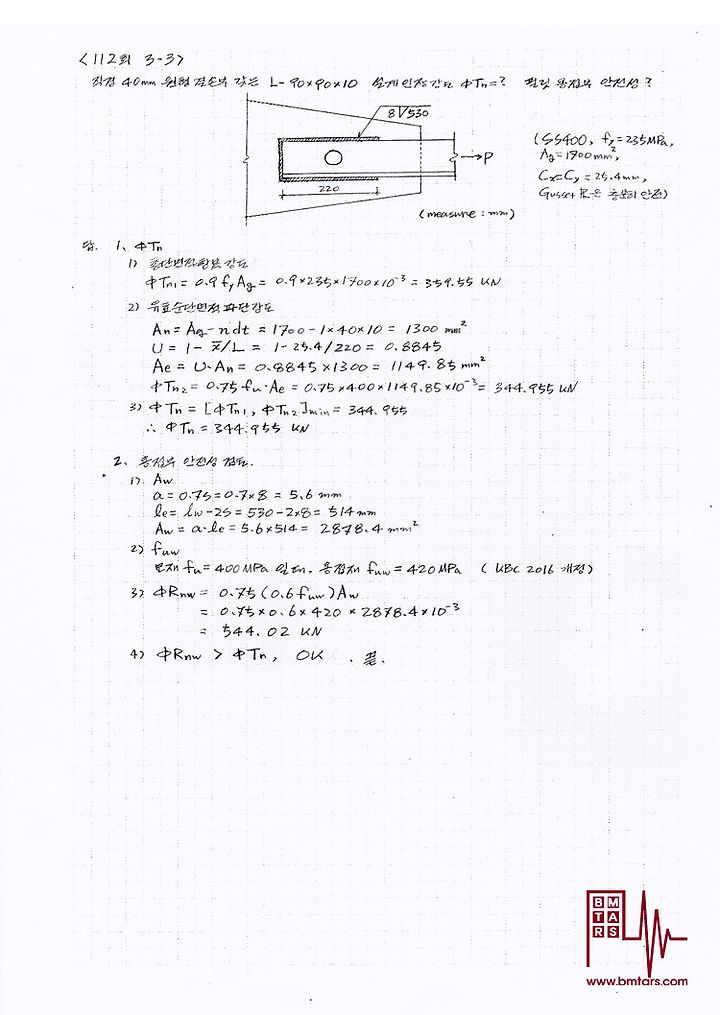 <112회 3-3>
직경 40mm 원형 결손부 갖는 L-90×90×10 설계인장강도 ΦTn=? 필릿 용접부 안전성?
8V530
(SS400, fy=235MPa,
Ag=1700mm²,
Cx=Cy=25.4mm,
Gusset 은 충분히 안전)
→P
220
(measure: mm)
답. 1、ΦTn
1) 총단면적항복강도
ΦTn1 = 0.9fyAg = 0.9×235×1700×10⁻³ = 359.55 kN
2) 유효순단면적 파단강도
An = Ag-ndt = 1700-1×40×10 = 1300 mm²
U = 1-x̄/L = 1-25.4/220 = 0.8845
Ae = U·An = 0.8845×1300 = 1149.85 mm²
ΦTn2 = 0.75fu·Ae = 0.75×400×1149.85×10⁻³ = 344.955 kN
3) ΦTn = [ΦTn1, ΦTn2]min = 344.955
∴ ΦTn = 344.955 kN
2、용접부 안전성 검토.
1) Aw
a = 0.7S = 0.7×8 = 5.6 mm
le = lw-2S = 530-2×8 = 514mm
Aw = a·le = 5.6×514 = 2878.4 mm²
2) fuw
모재 fu=400MPa 일때, 용접재 fuw=420MPa (KBC 2016 개정)
3) ΦRnw = 0.75(0.6fuw)Aw
= 0.75×0.6×420×2878.4×10⁻³
= 544.02 kN
4) ΦRnw > ΦTn, OK . 끝.
BM
TA
RS
www.bmtars.com